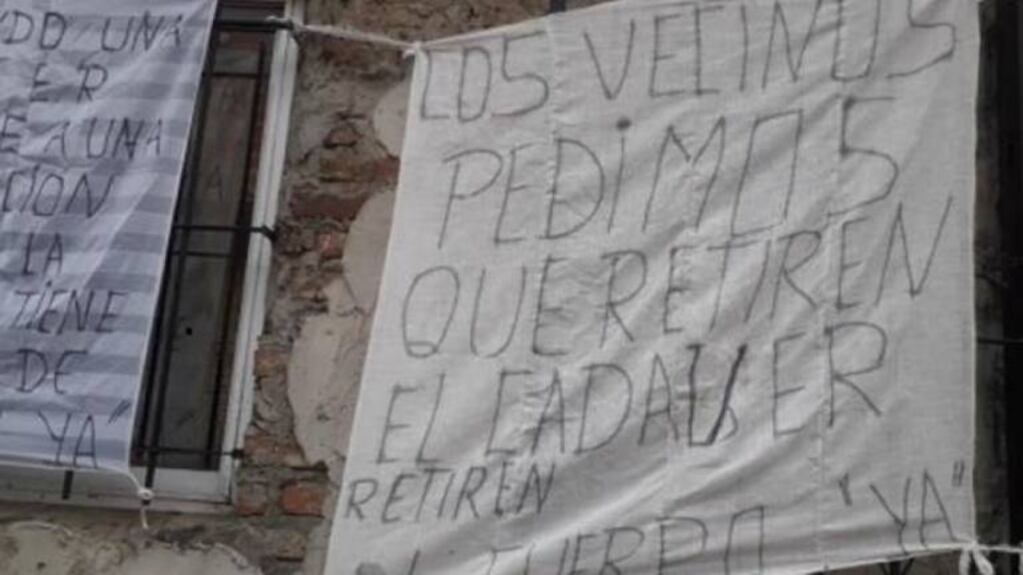 DO UNA
ER
E A UNA
CION
LA
TIENE
DE
YA"
LOS VECINOS
PEDIMOS
QUE RETIREN
EL CADAVER
RETIREN
CUERPO "YA"